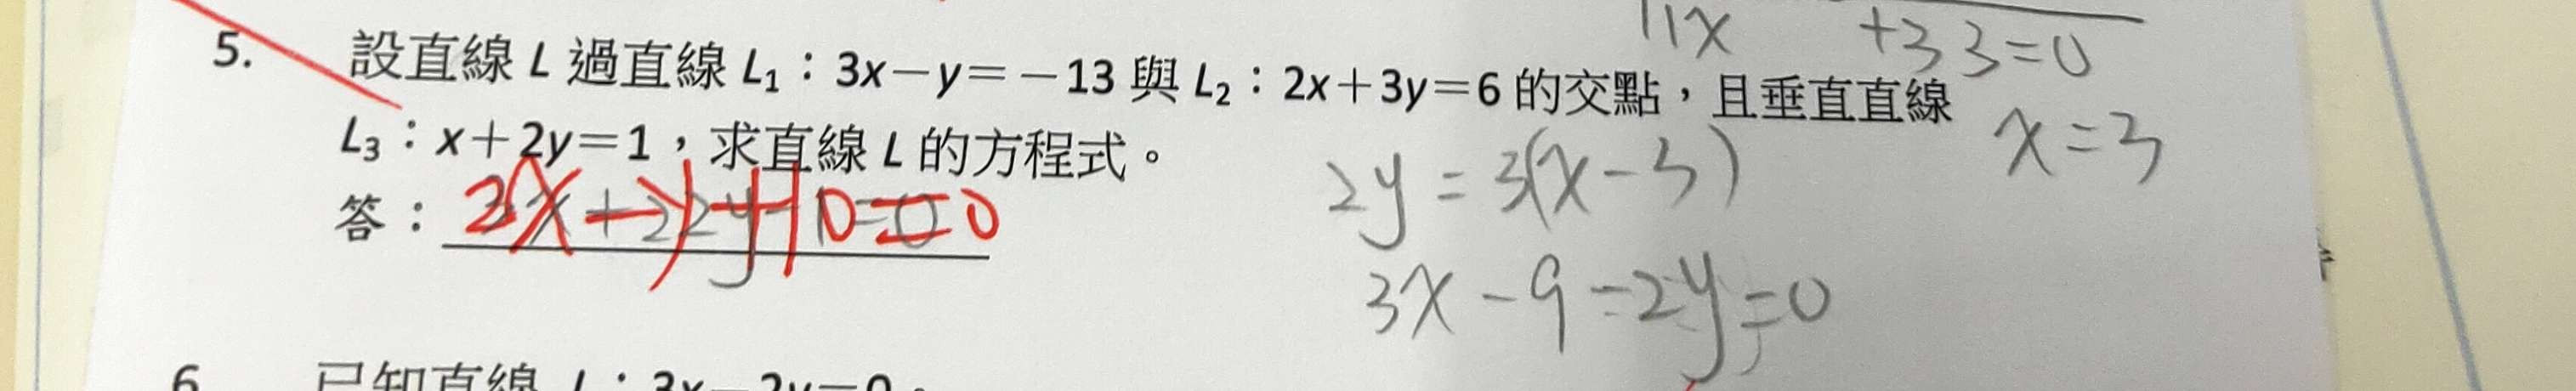 11x +33=0
5. 設直線 L 過直線 L₁：3x－y＝－13 與 L₂：2x＋3y＝6 的交點，且垂直直線
x=3
L₃：x＋2y＝1，求直線 L 的方程式。
2y=3(x-3)
答：
3x-9-2y=0
6. 已知直線 L：3x－2y＝0，